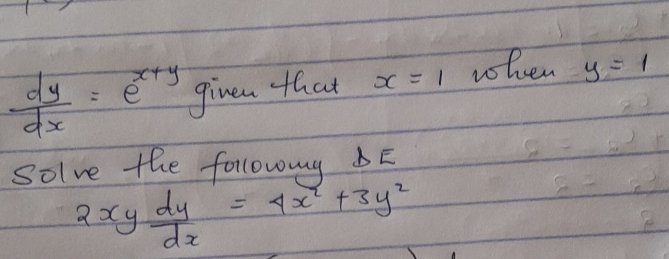 dy/dx = e^(x+y) given that x = 1 when y = 1
Solve the following DE
2xy dy/dx = 4x² + 3y²